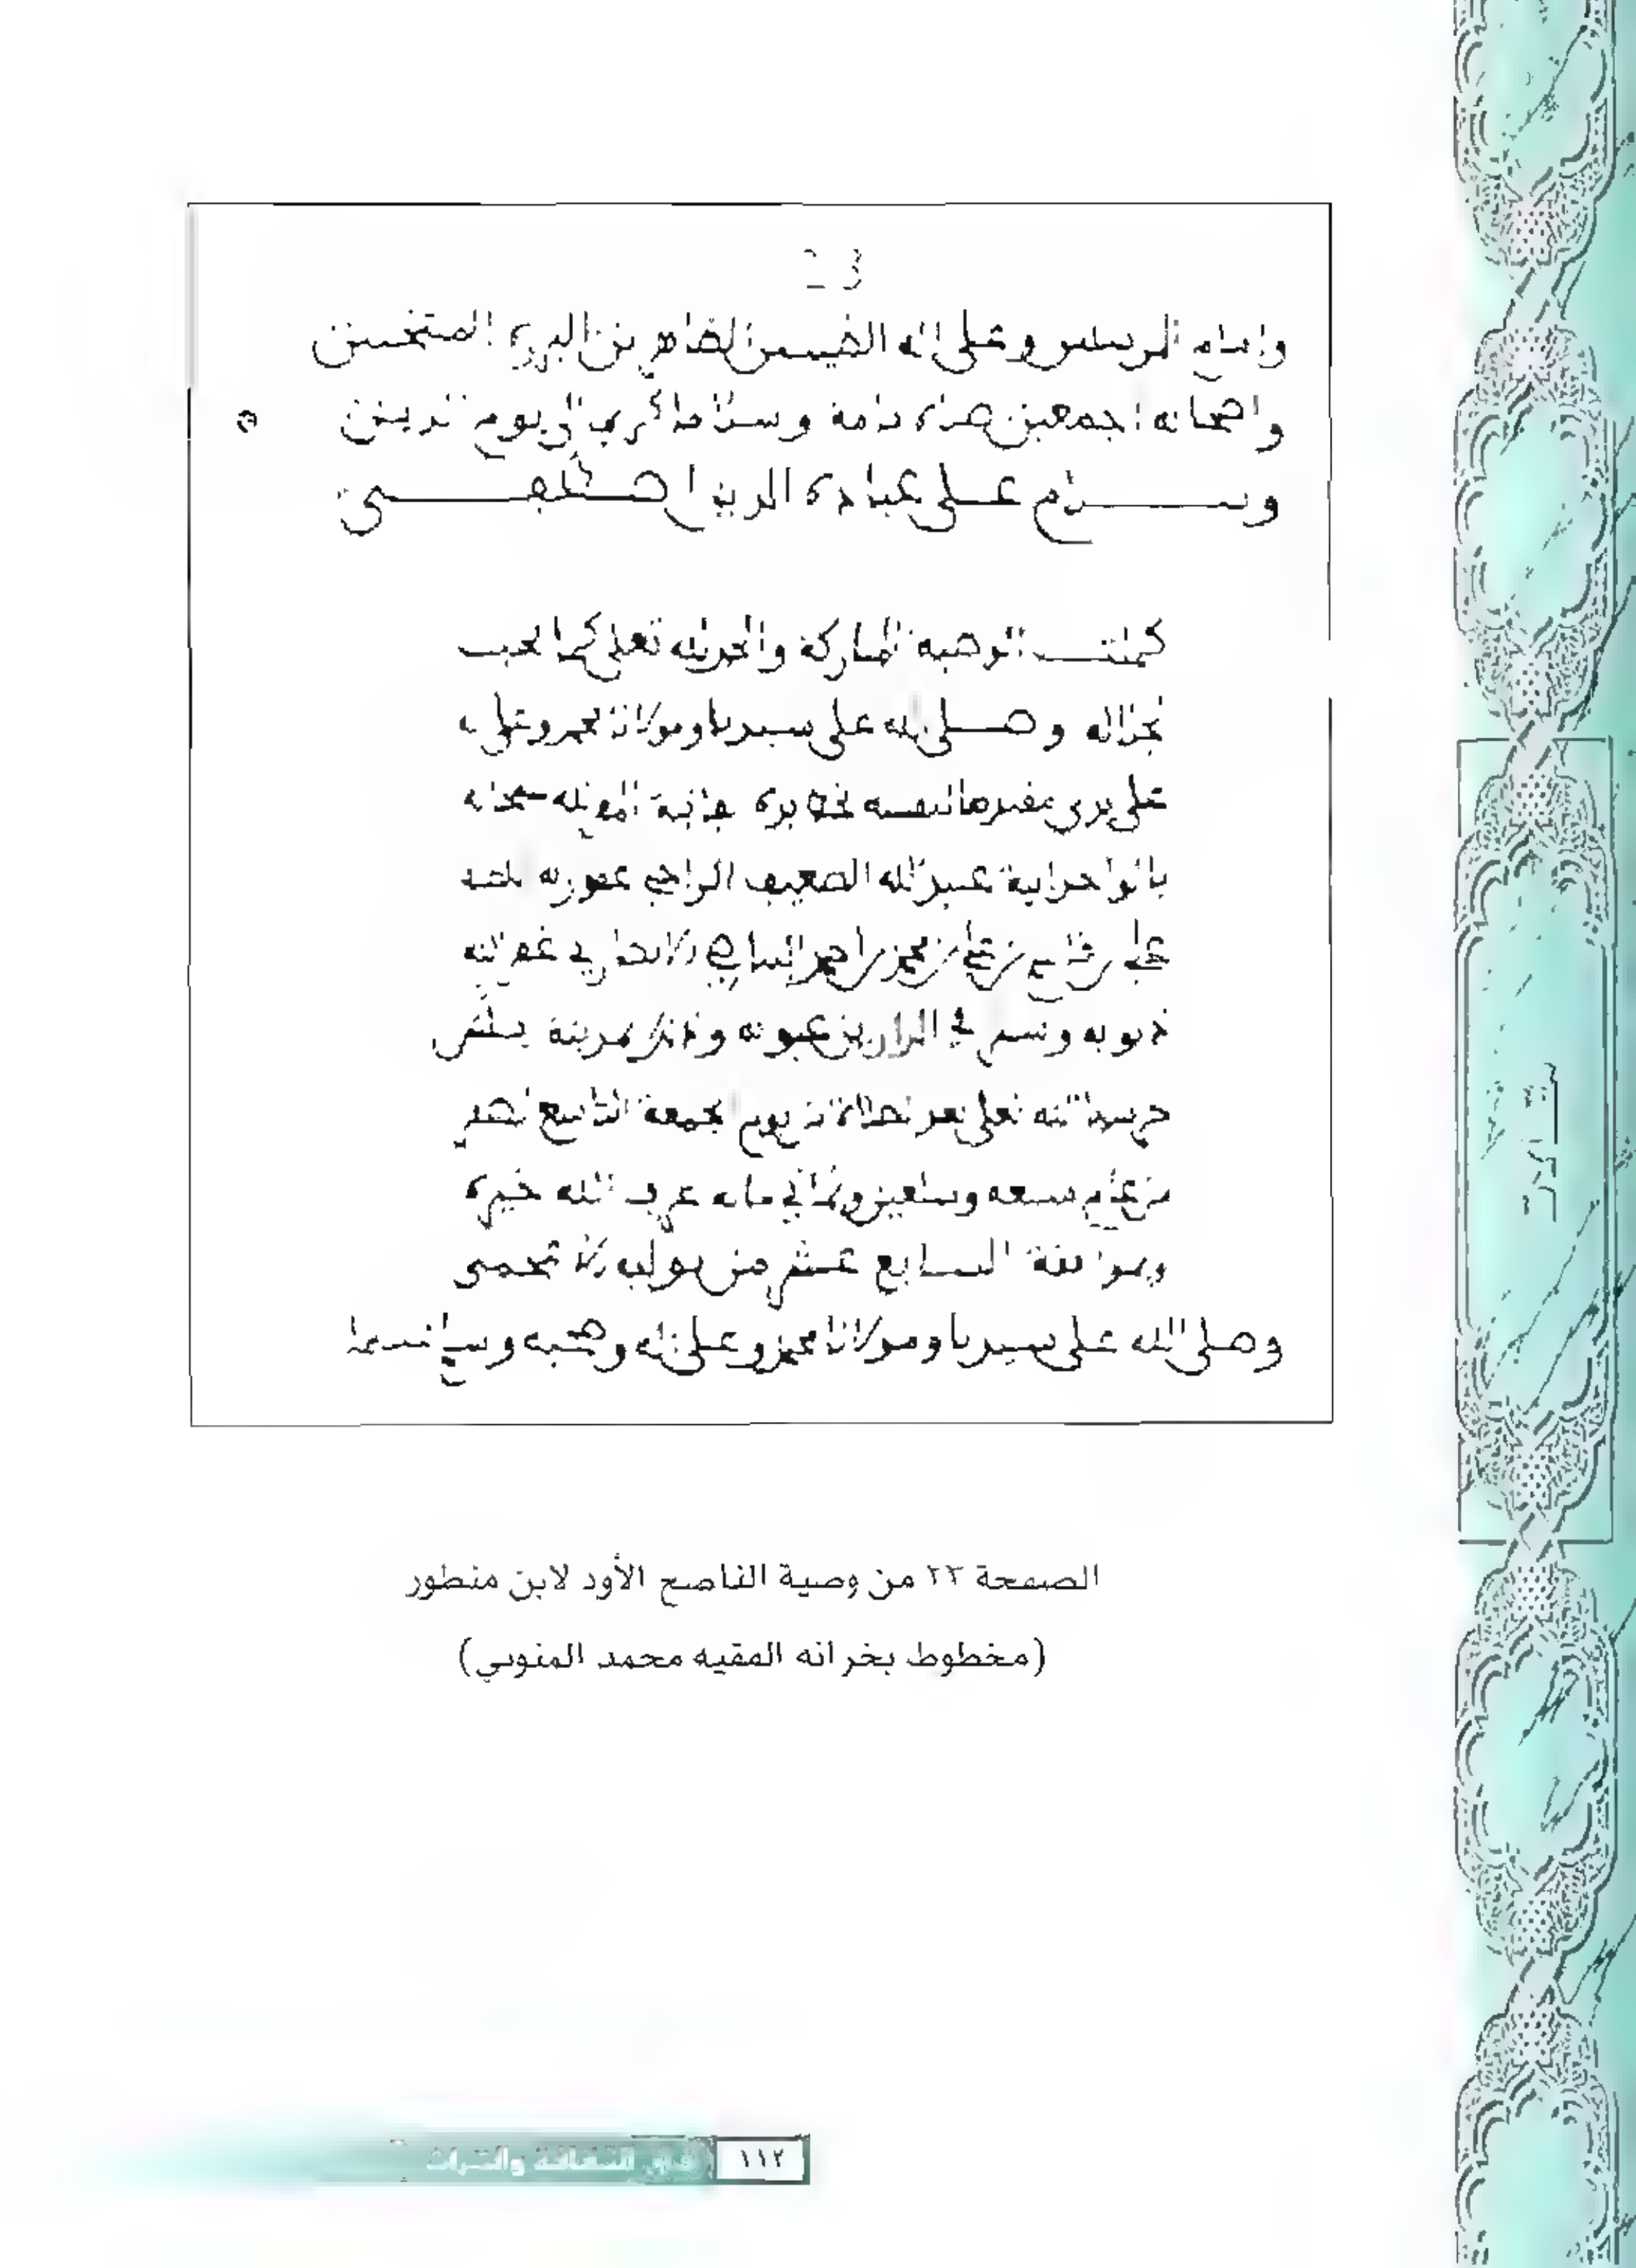 23
وامام المرسلين وعلى اله الطيبين الطاهرين البررة المنتخبين
واصحابه اجمعين صلاة دايمة وسلاما كريما الى يوم الدين
وسلام على عباده الذين اصطفى
كملت الوصية المباركة والحمد لله تعلى كما يجب
لجلاله وصلى الله على سيدنا ومولانا محمد وعلى اله
على يدي مقيدها لنفسه بخط يده الله سبحانه
بالوحدانية عبيد الله الضعيف الراجي عفوه
علي بن قاسم بن علي بن محمد بن احمد البياضي الانصاري غفر الله
ذنوبه وستر في الدارين عيوبه وذلك بمدينة بلش
حرسها الله تعلى بعد صلاة يوم الجمعة التاسع لصفر
من عام تسعة وسبعين وثماني ماية عرف الله خيره
وبموافقة السابع عشر من يوليه الاعجمي
وصلى الله على سيدنا ومولانا محمد وعلى اله وصحبه وسلم تسليما
مقالات
الصفحة ٢٣ من وصية الناصح الأود لابن منظور
(مخطوط بخزانة الفقيه محمد المنوني)
١١٢ آفاق الثقافة والتراث